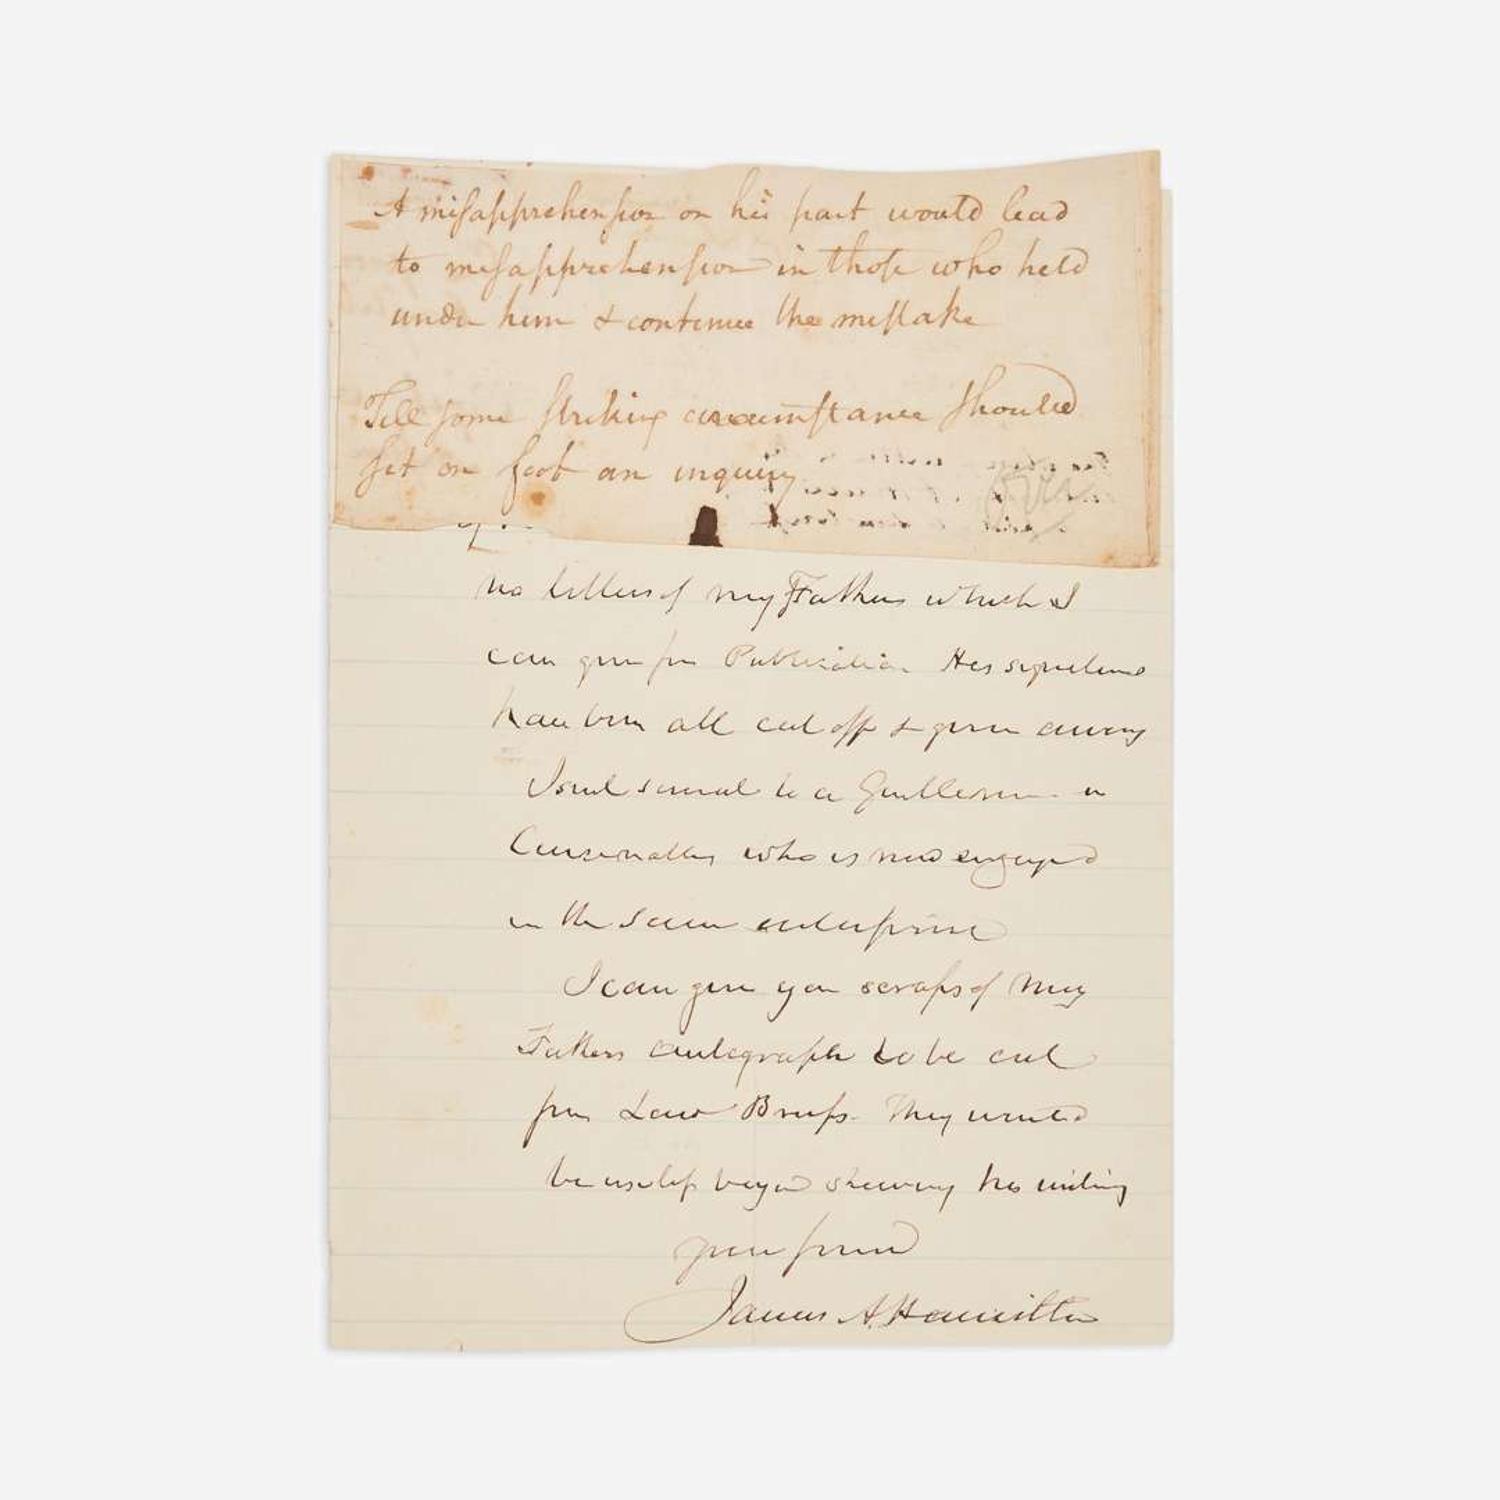 A misapprehension on his part would lead
to misapprehension in those who held
under him & continue the mistake
Till some striking circumstance should
set on foot an inquiry
no letters of my Father which I
can give for Publication His signatures
have been all cut off & given away
I sent several to a Gentleman in
Cincinnatti who is now engaged
in the same enterprise
I can give you scraps of my
Fathers autograph to be cut
from Law Briefs. They would
be useless beyond shewing his writing
your friend
James A. Hamilton